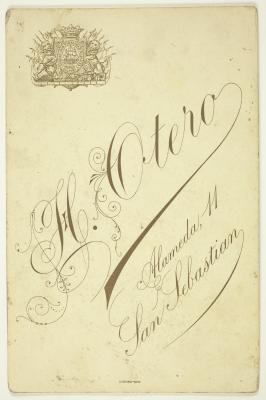 H. Otero
Alameda, 11
San Sebastian